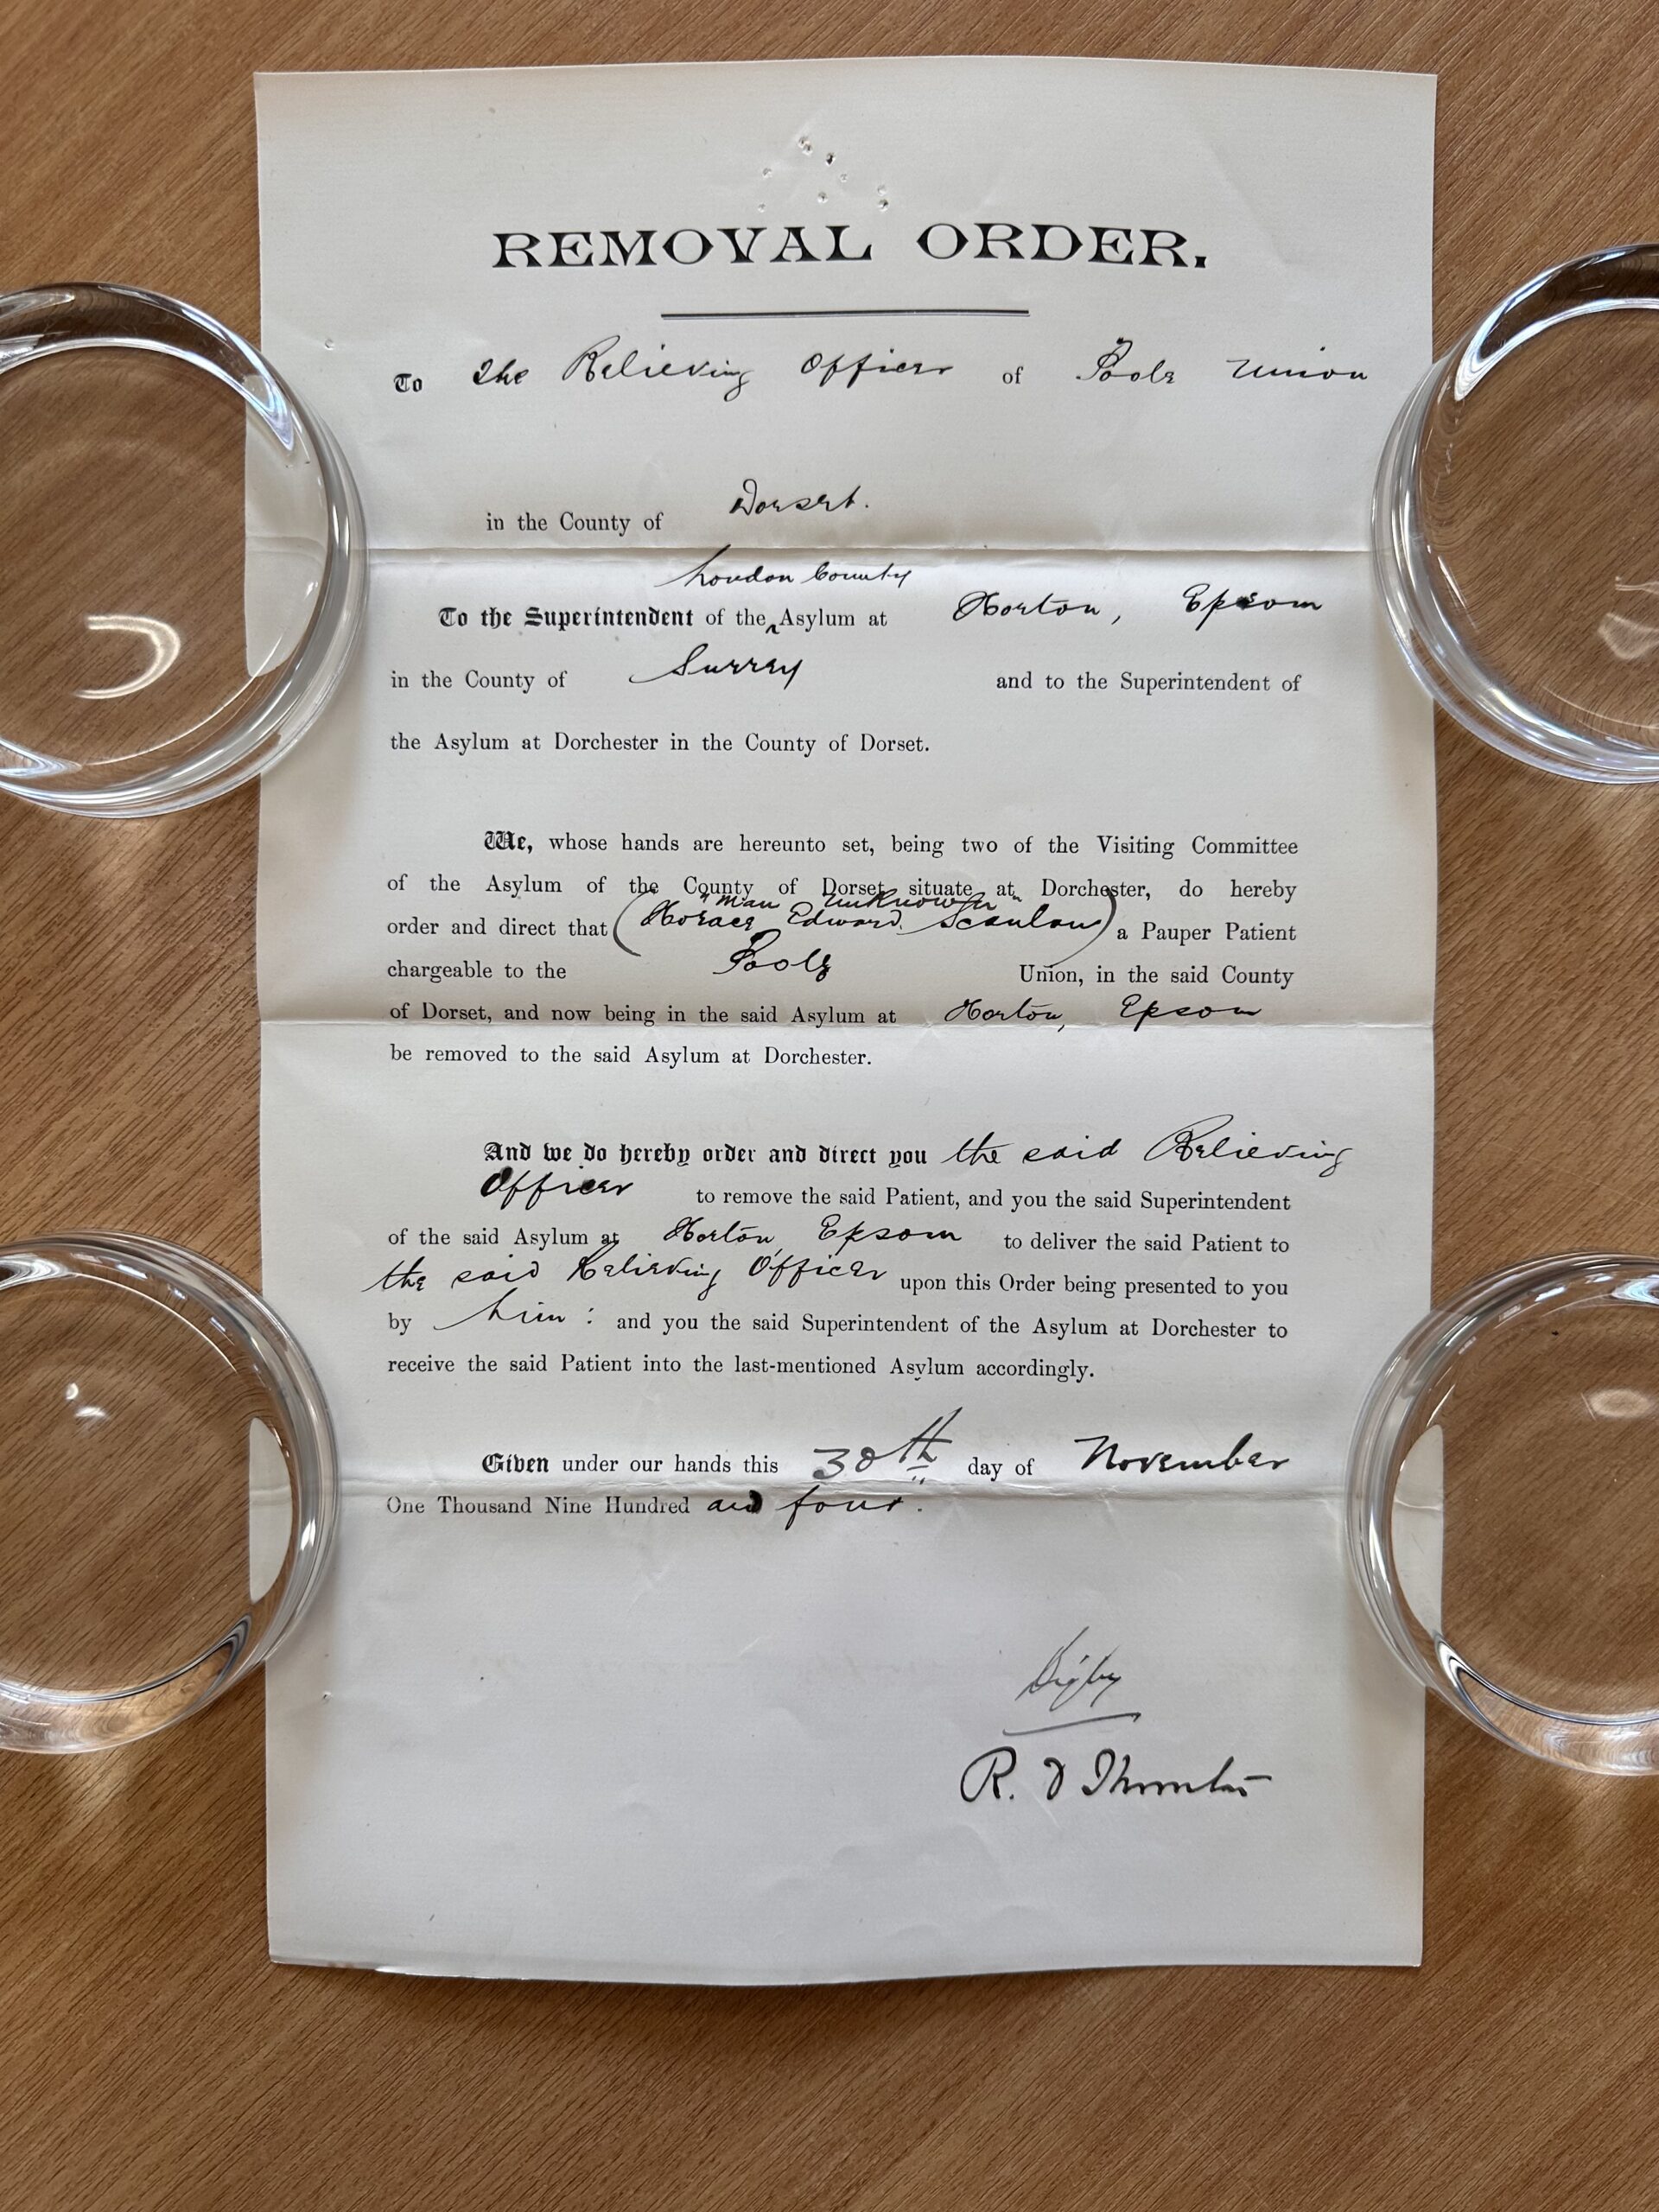 REMOVAL ORDER.
To The Relieving Officer of Poole Union
in the County of Dorset.
London County
To the Superintendent of the ‸ Asylum at Horton, Epsom
in the County of Surrey and to the Superintendent of
the Asylum at Dorchester in the County of Dorset.
We, whose hands are hereunto set, being two of the Visiting Committee
of the Asylum of the County of Dorset situate at Dorchester, do hereby
"Man Unknown"
order and direct that (Horace Edward Scanlan) a Pauper Patient
chargeable to the Poole Union, in the said County
of Dorset, and now being in the said Asylum at Horton, Epsom
be removed to the said Asylum at Dorchester.
And we do hereby order and direct you the said Relieving
Officer to remove the said Patient, and you the said Superintendent
of the said Asylum at Horton, Epsom to deliver the said Patient to
the said Relieving Officer upon this Order being presented to you
by him: and you the said Superintendent of the Asylum at Dorchester to
receive the said Patient into the last-mentioned Asylum accordingly.
Given under our hands this 30th day of November
One Thousand Nine Hundred and four.
Digby
R. D Thornton